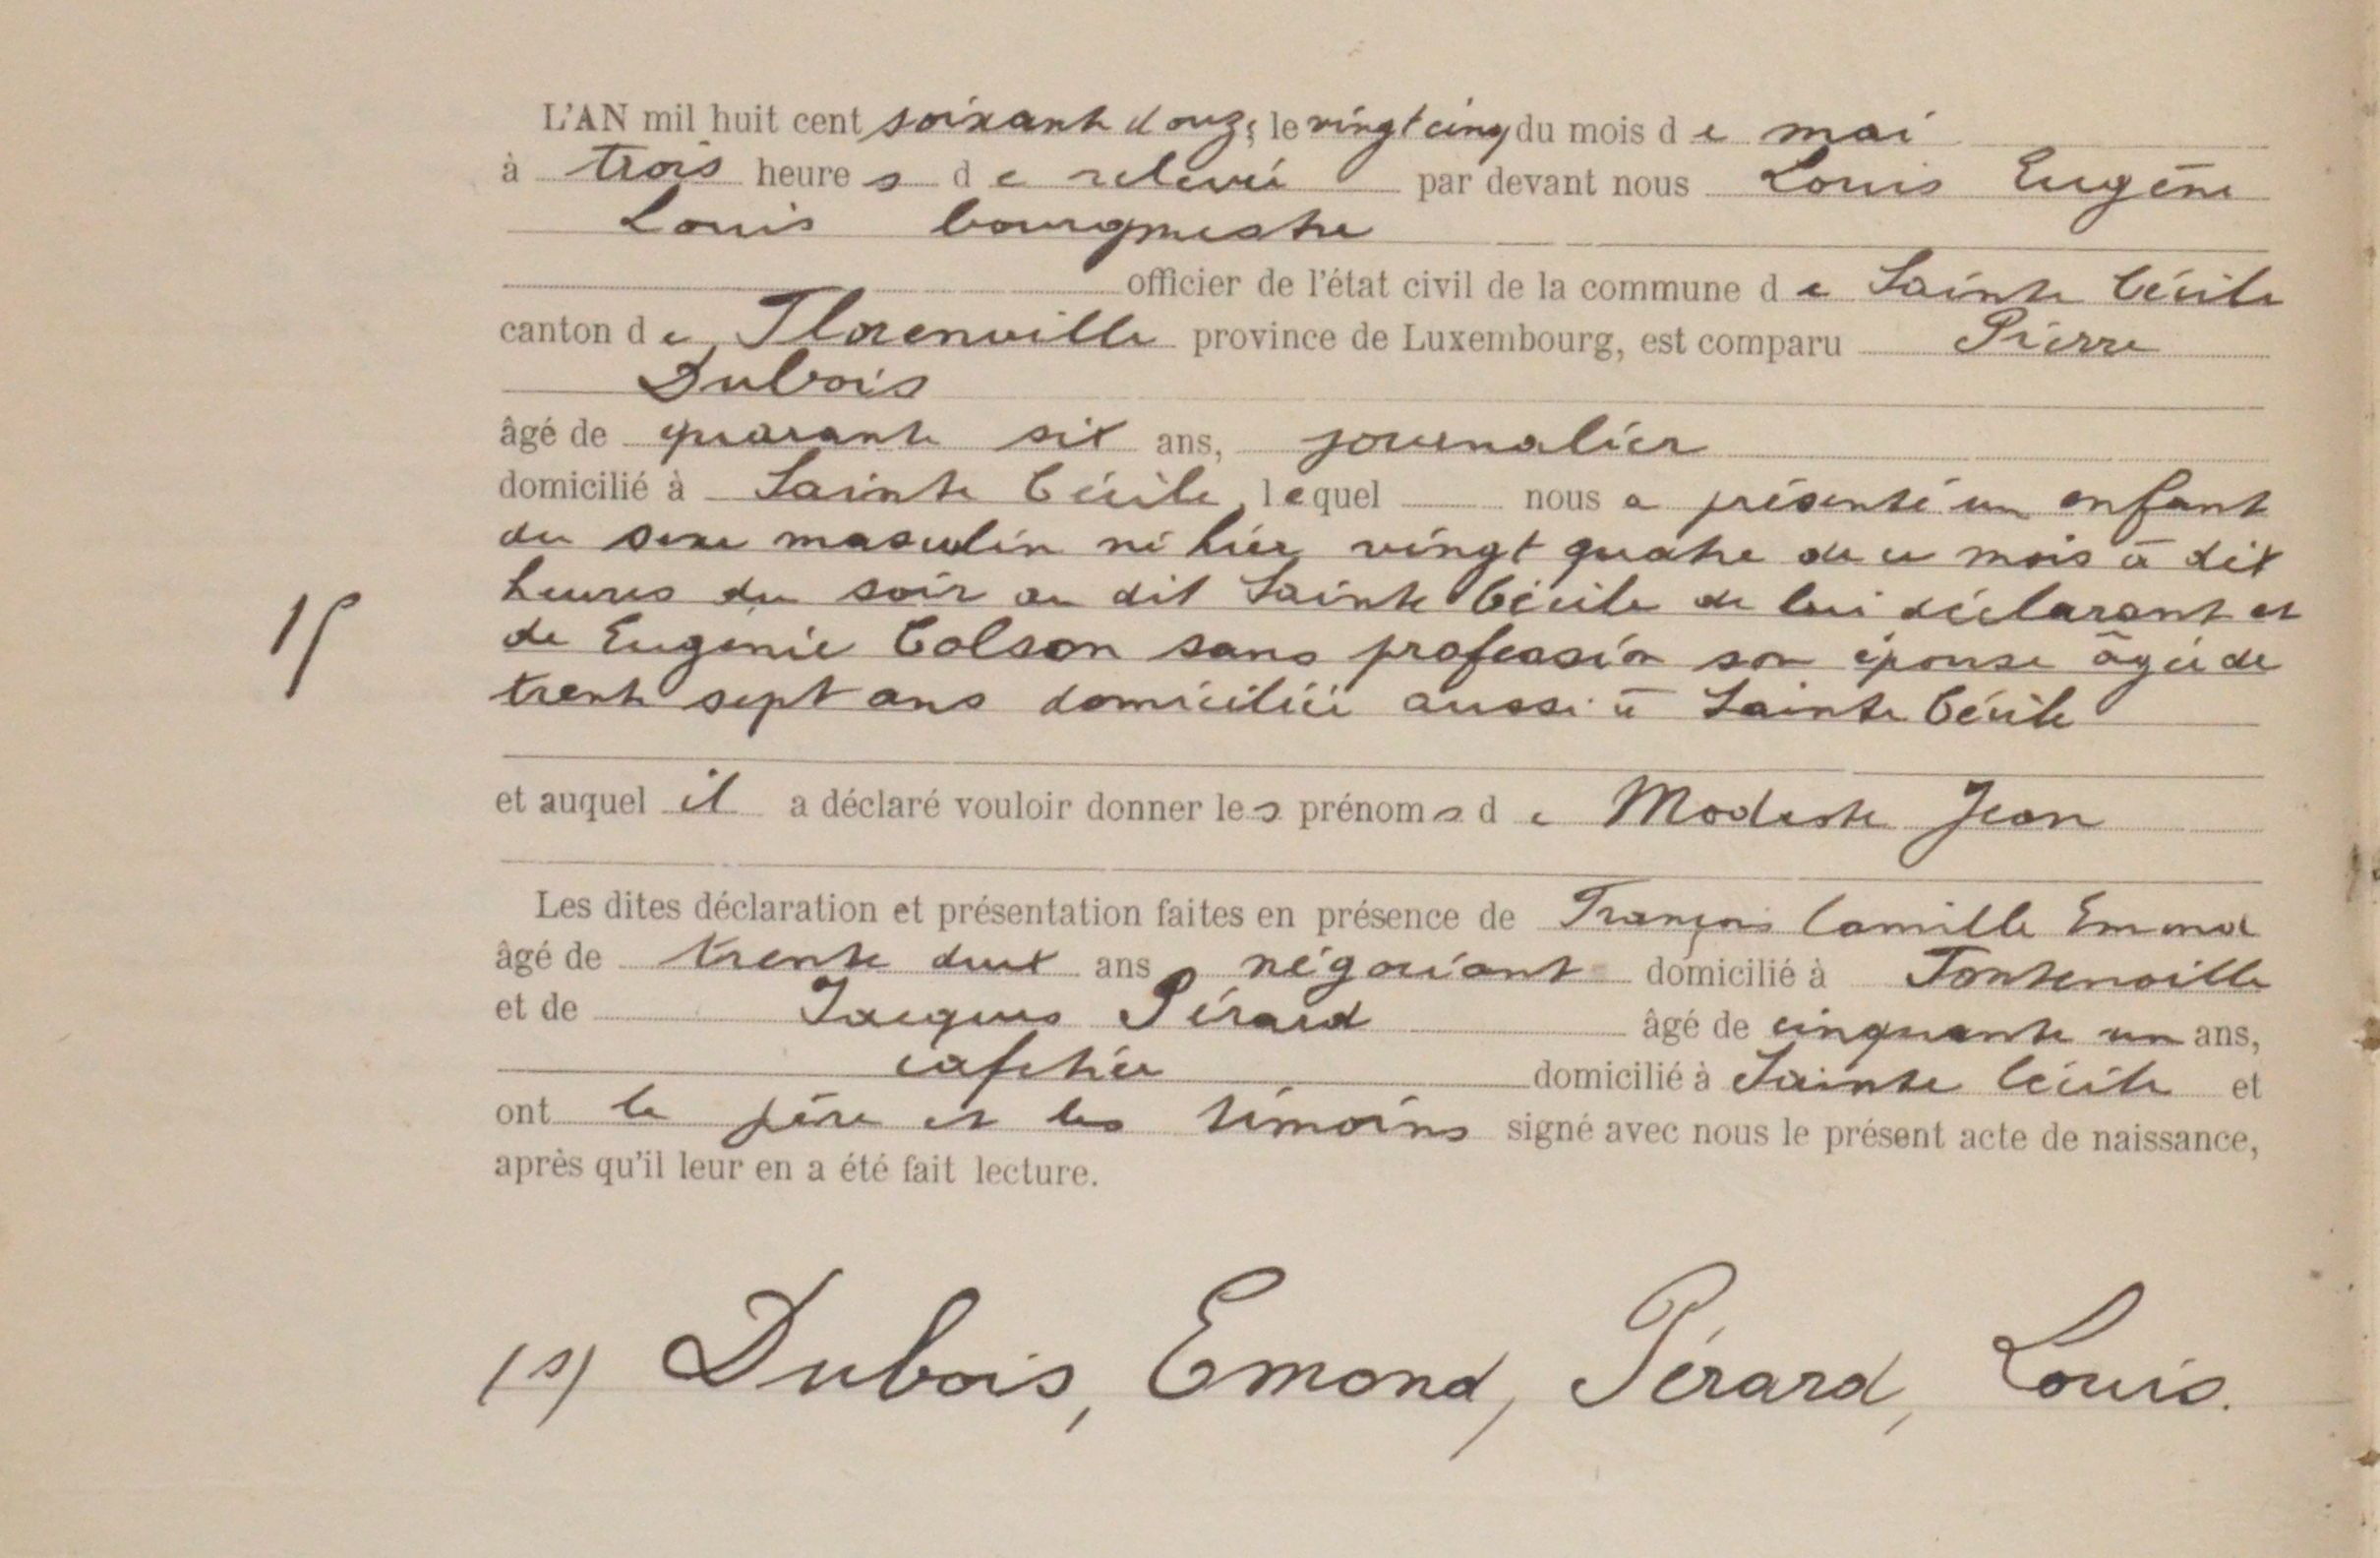 L'AN mil huit cent soixante douze le vingt cinq du mois de mai
à trois heures de relevée par devant nous Louis Eugène
Louis bourgmestre
officier de l'état civil de la commune de Sainte Cécile
canton de Florenville province de Luxembourg, est comparu Pierre
Dubois
âgé de quarante six ans, journalier
domicilié à Sainte Cécile, lequel nous a présenté un enfant
du sexe masculin né hier vingt quatre de ce mois à dix
heures du soir au dit Sainte Cécile de lui déclarant et
15
de Eugénie Colson sans profession son épouse âgée de
trente sept ans domiciliée aussi à Sainte Cécile
et auquel il a déclaré vouloir donner les prénoms de Modeste Jean
Les dites déclaration et présentation faites en présence de François Camille Emond
âgé de trente deux ans, négociant domicilié à Fontenoille
et de Jacques Pérard âgé de cinquante un ans,
cafetier domicilié à Sainte Cécile et
ont le père et les témoins signé avec nous le présent acte de naissance,
après qu'il leur en a été fait lecture.
(s) Dubois, Emond, Pérard, Louis.